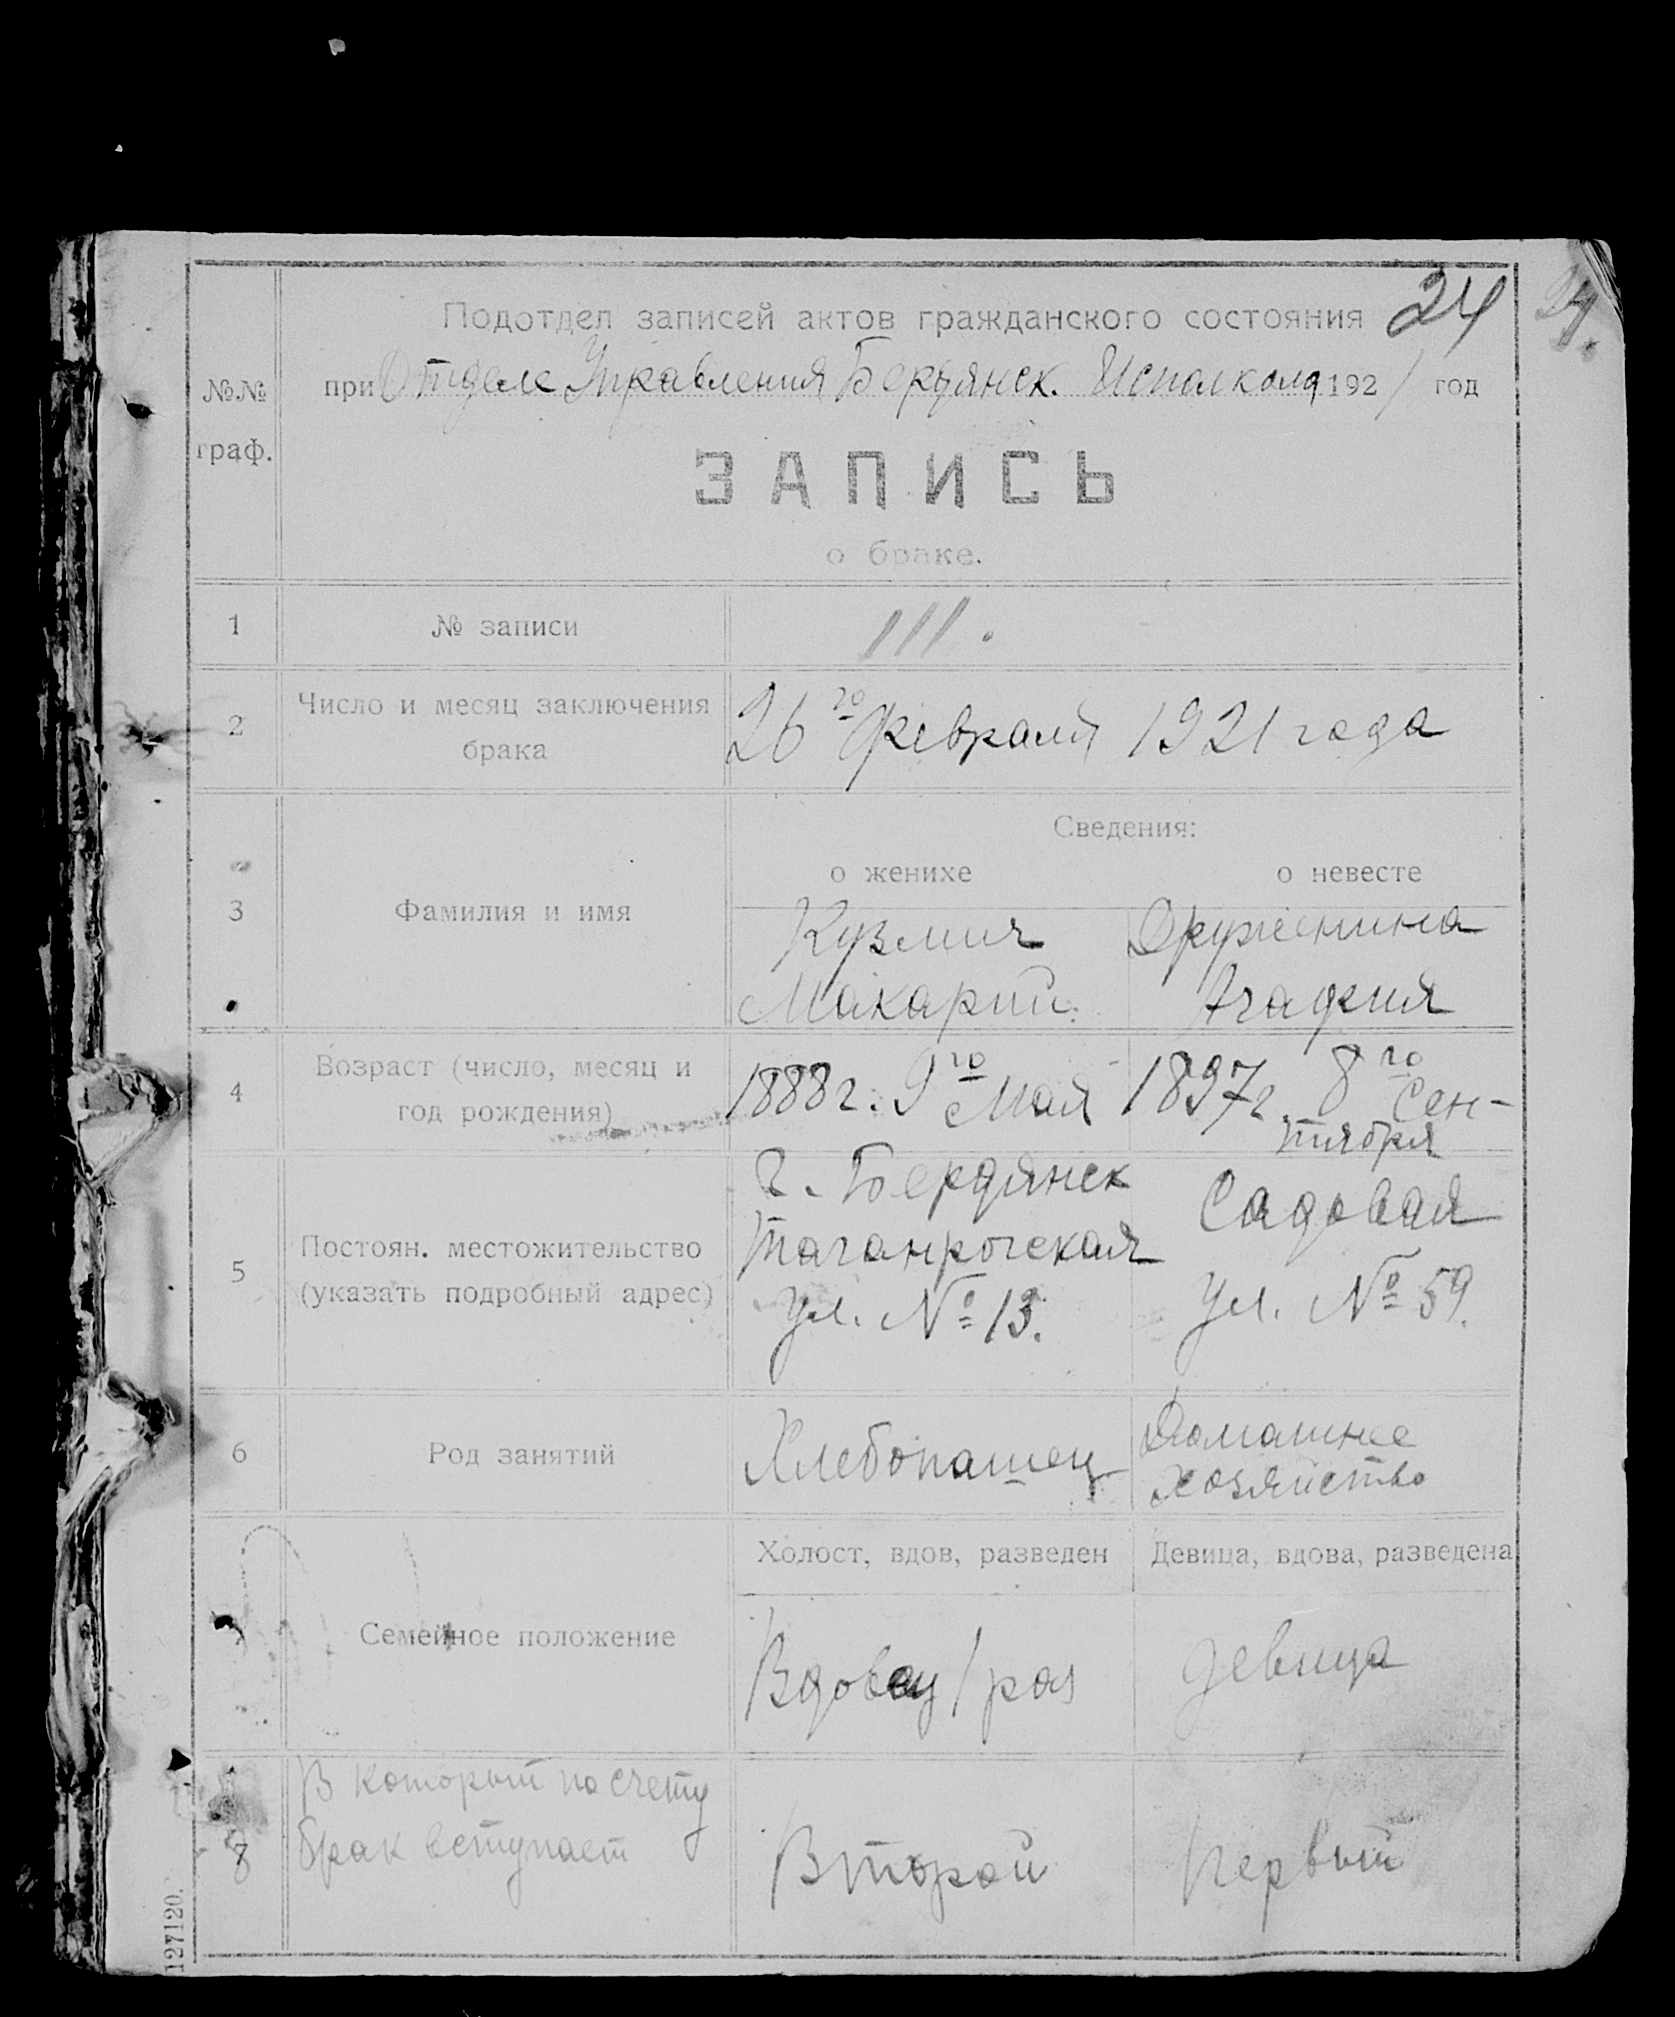 24
24.
Подотдел записей актов гражданского состояния
при Отделе Управления Бердянск. Исполкома 1921 год
№№
граф.
ЗАПИСЬ
о браке.
1 № записи 111.
2 Число и месяц заключения
брака
26го февраля 1921 года
Сведения:
о женихе о невесте
3 Фамилия и имя
Кузмич Дружинина
Макарий. Агафия
4 Возраст (число, месяц и
год рождения)
1888г. 9го Мая 1897г. 8го Сен-
тября
5 Постоян. местожительство
(указать подробный адрес)
г. Бердянск
Таганрогская
ул. № 13.
Садовая
ул. № 59.
6 Род занятий
Хлебопашец
Домашнее
хозяйство
7 Семейное положение
Холост, вдов, разведен Девица, вдова, разведена
Вдовец 1 раз девица
8 В который по счету
брак вступает
Второй Первый
127120.